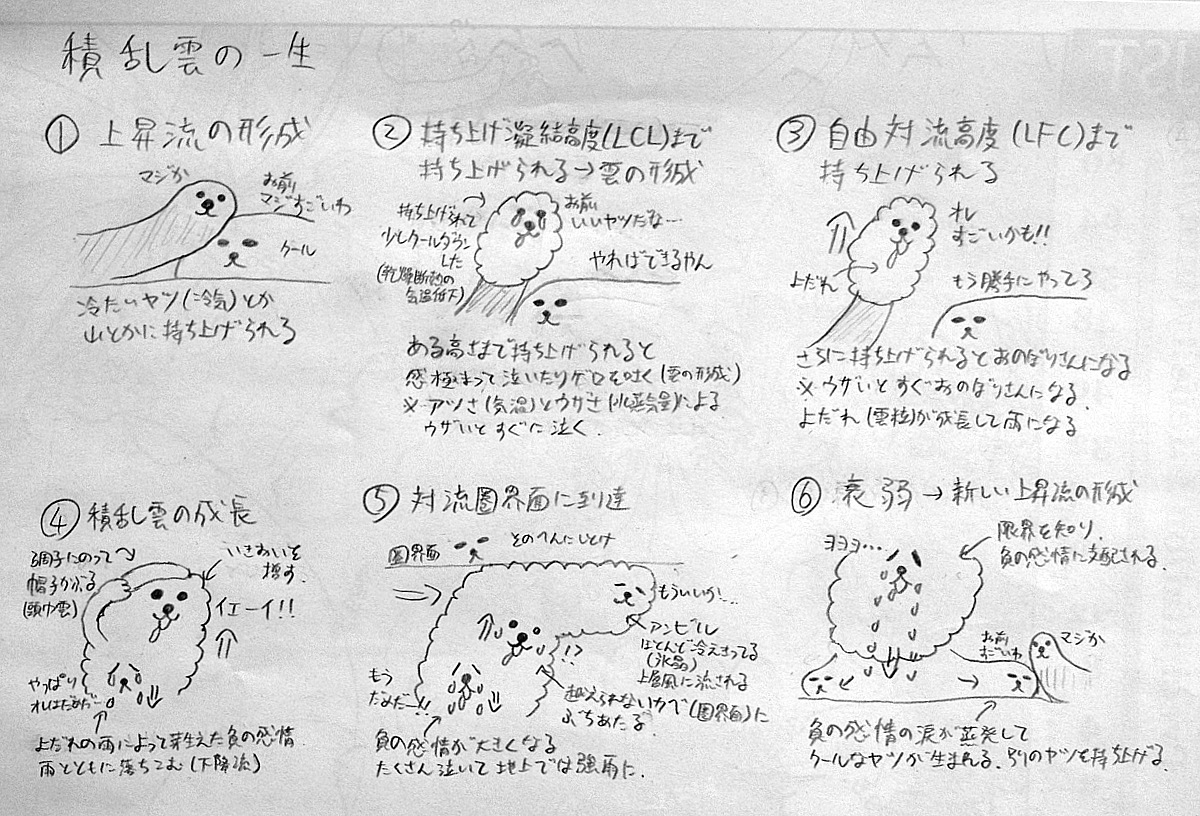 積乱雲の一生
① 上昇流の形成
マジか
お前
マジすごいわ
クール
冷たいヤツ(冷気)とか
山とかに持ち上げられる
② 持ち上げ凝結高度(LCL)まで
持ち上げられる→雲の形成
持ち上げられて
少しクールダウン
した
(乾燥断熱の
気温低下)
お前
いいヤツだな…
やればできるやん
ある高さまで持ち上げられると
感極まって泣いたりゲロを吐く(雲の形成)
※アツさ(気温)とウザさ(水蒸気量)による
ウザいとすぐに泣く.
③ 自由対流高度(LFC)まで
持ち上げられる
オレ
すごいかも!!
よだれ
もう勝手にやってろ
さらに持ち上げられるとおのぼりさんになる
※ウザいとすぐおのぼりさんになる.
よだれ(雲粒)が成長して雨になる
④ 積乱雲の成長
調子にのって
帽子かぶる
(頭巾雲)
いきおいを
増す.
イエーイ!!
やっぱり
オレはだめだ…
よだれの雨によって芽生えた負の感情.
雨とともに落ちこむ(下降流)
⑤ 対流圏界面に到達
圏界面
そのへんにしとけ
もういいか…
アンビル
ほとんど冷えきってる
(氷晶)
上層風に流される
!?
もう
だめだー!!
越えられないカベ(圏界面)に
ぶちあたる
負の感情が大きくなる
たくさん泣いて地上では強雨に.
⑥ 衰弱→新しい上昇流の形成
ヨヨヨ…
限界を知り,
負の感情に支配される.
お前
すごいわ
マジか
負の感情の涙が蒸発して
クールなヤツが生まれる. 別のヤツを持ち上げる.